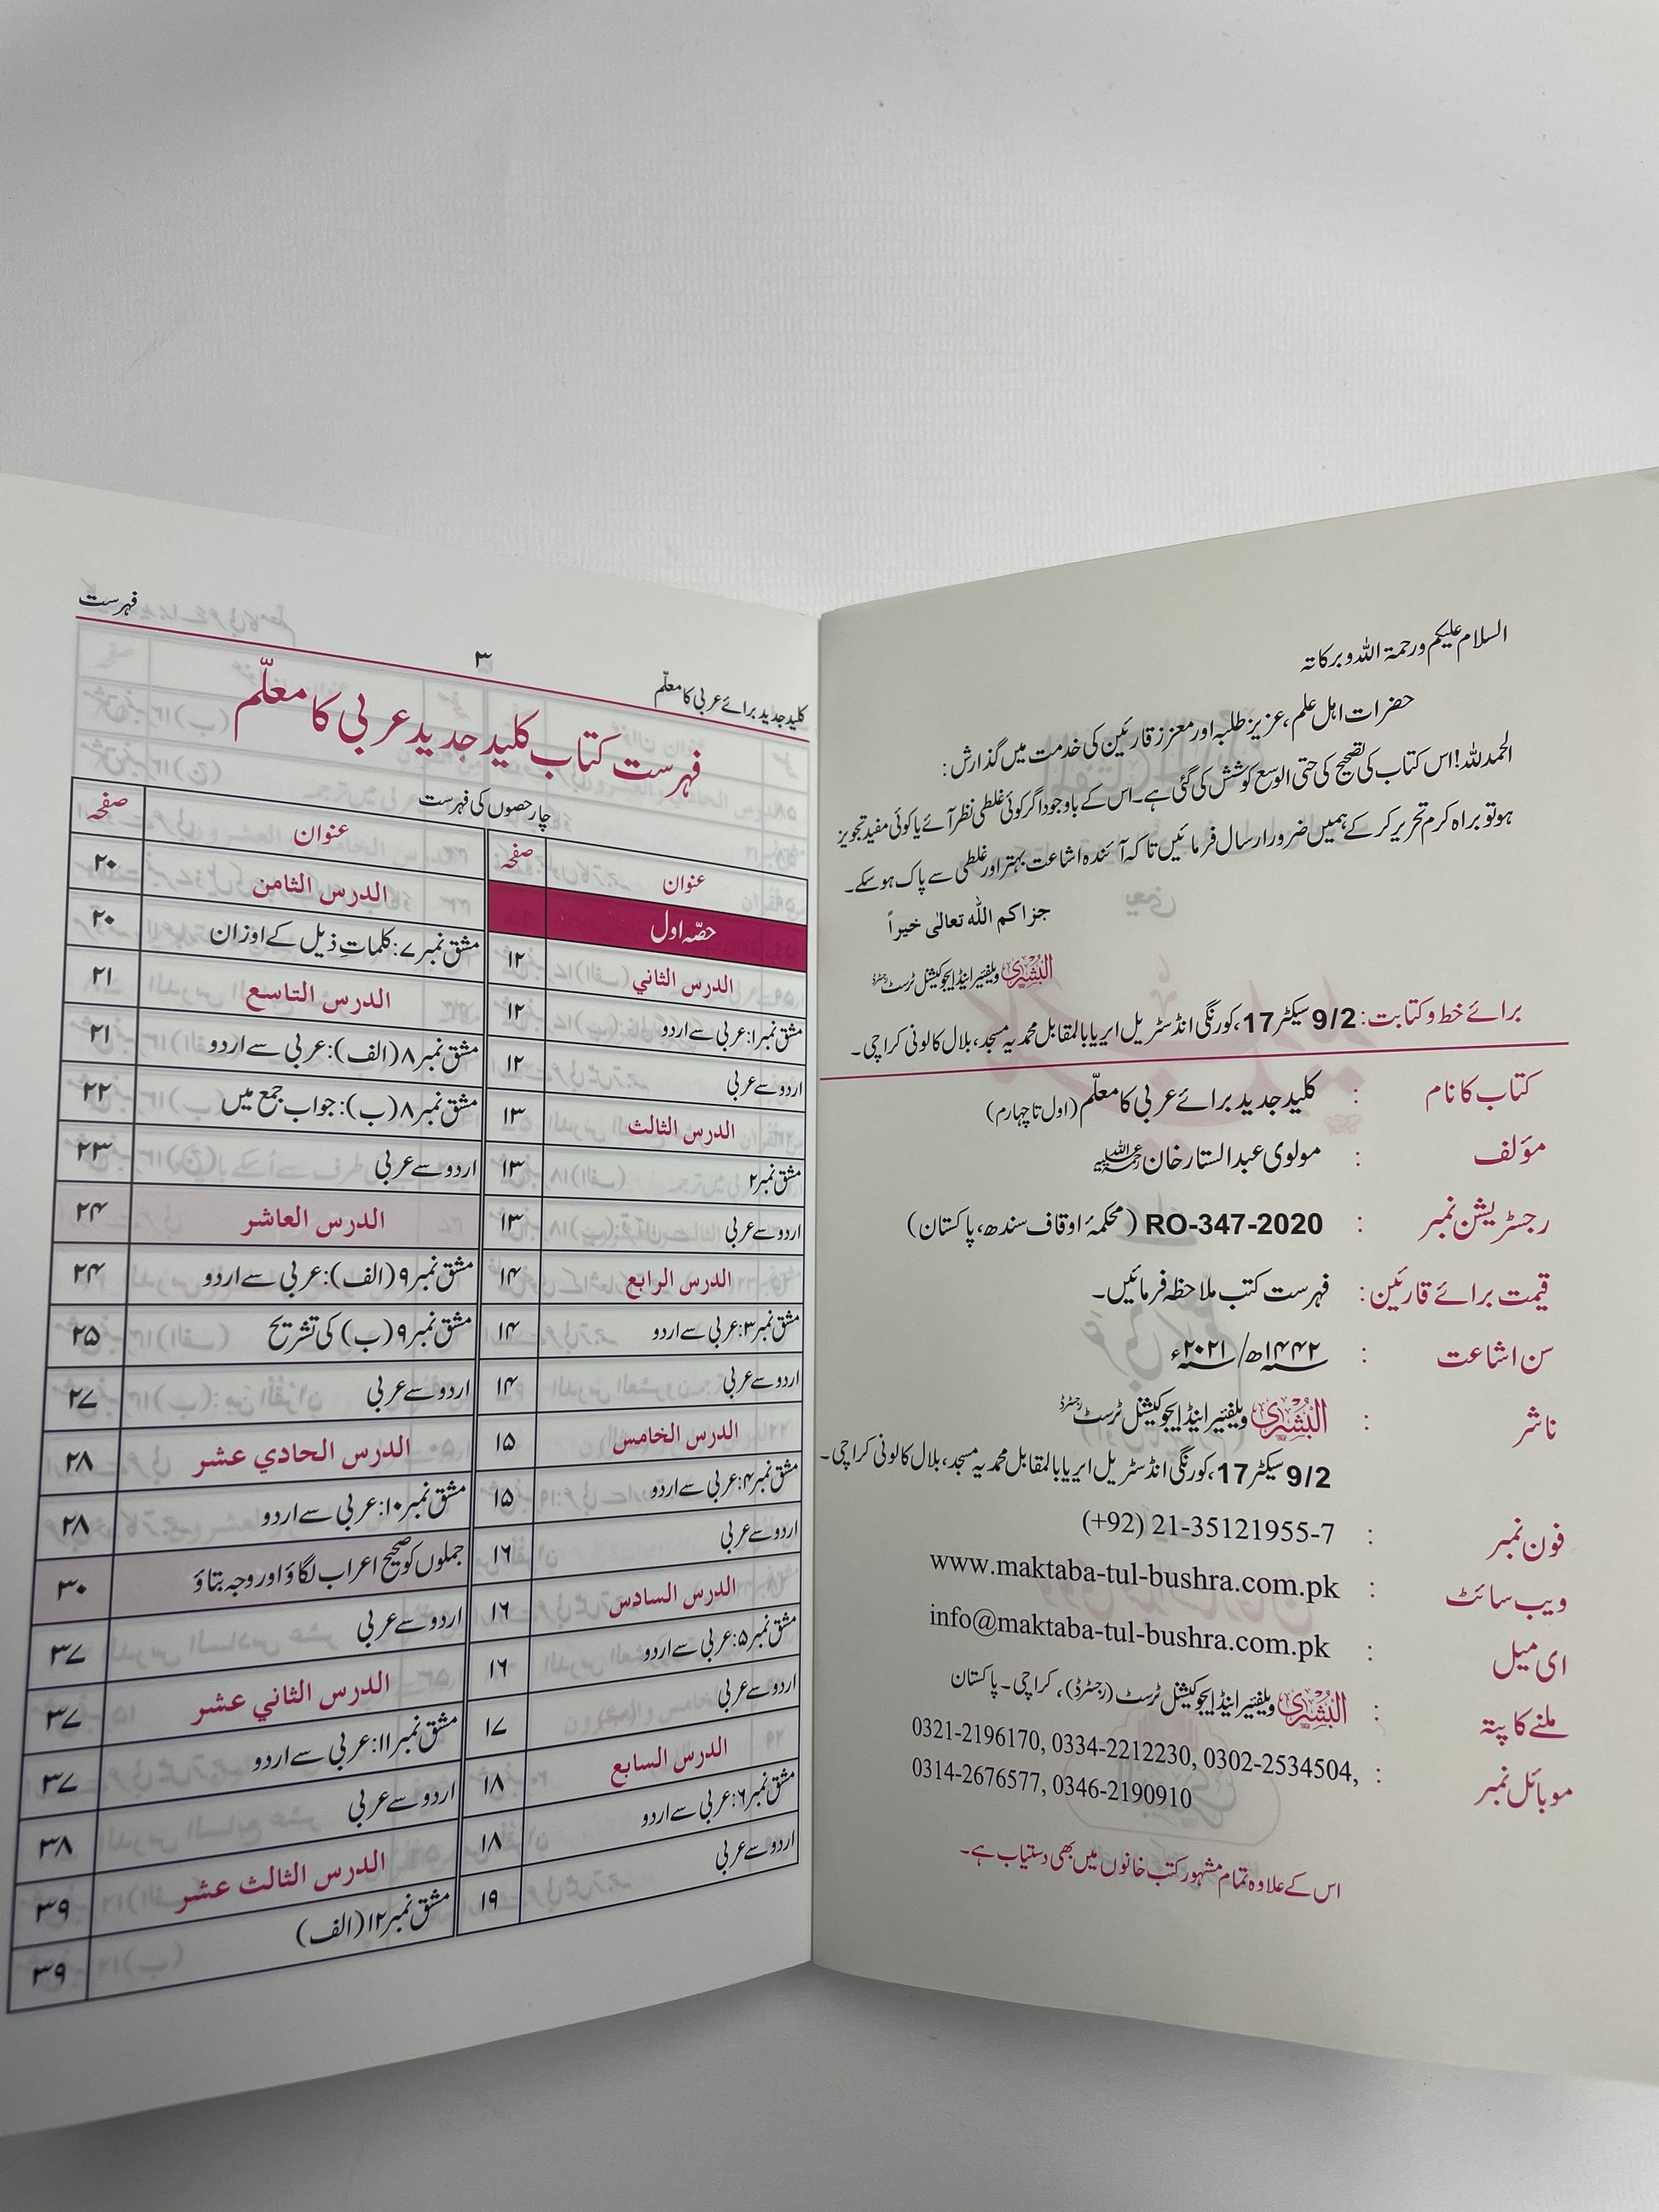 السلام علیکم ورحمۃ اللہ وبرکاتہ
حضرات اہل علم، عزیز طلبہ اور معزز قارئین کی خدمت میں گذارش:
الحمدللہ! اس کتاب کی تصحیح کی حتی الوسع کوشش کی گئی ہے۔ اس کے باوجود اگر کوئی غلطی نظر آئے یا کوئی مفید تجویز
ہو تو براہ کرم تحریر کرکے ہمیں ضرور ارسال فرمائیں تاکہ آئندہ اشاعت بہتر اور غلطی سے پاک ہوسکے۔
جزاکم اللہ تعالی خیراً
البشریٰ ویلفیئر اینڈ ایجوکیشنل ٹرسٹ رجسٹرڈ
برائے خط وکتابت: 9/2 سیکٹر 17، کورنگی انڈسٹریل ایریا بالمقابل محمدیہ مسجد، بلال کالونی کراچی۔
کتاب کا نام : کلید جدید برائے عربی کا معلّم (اول تا چہارم)
مؤلف : مولوی عبدالستار خان رحمۃ اللہ علیہ
رجسٹریشن نمبر : RO-347-2020 (محکمۂ اوقاف سندھ، پاکستان)
قیمت برائے قارئین: فہرست کتب ملاحظہ فرمائیں۔
سن اشاعت : ۱۴۴۲ھ/ ۲۰۲۱ء
ناشر : البشریٰ ویلفیئر اینڈ ایجوکیشنل ٹرسٹ رجسٹرڈ
9/2 سیکٹر 17، کورنگی انڈسٹریل ایریا بالمقابل محمدیہ مسجد، بلال کالونی کراچی۔
فون نمبر : (+92) 21-35121955-7
ویب سائٹ : www.maktaba-tul-bushra.com.pk
ای میل : info@maktaba-tul-bushra.com.pk
ملنے کا پتہ : البشریٰ ویلفیئر اینڈ ایجوکیشنل ٹرسٹ (رجسٹرڈ)، کراچی۔ پاکستان
موبائل نمبر : 0321-2196170, 0334-2212230, 0302-2534504,
0314-2676577, 0346-2190910
اس کے علاوہ تمام مشہور کتب خانوں میں بھی دستیاب ہے۔
کلید جدید برائے عربی کا معلّم ۳ فہرست
فہرست کتاب کلید جدید عربی کا معلّم
چار حصوں کی فہرست
عنوان صفحہ
حصّہ اول
الدرس الثاني ۱۲
مشق نمبر۱: عربی سے اردو ۱۲
اردو سے عربی ۱۲
الدرس الثالث ۱۳
مشق نمبر۲ ۱۳
اردو سے عربی ۱۳
الدرس الرابع ۱۴
مشق نمبر۳: عربی سے اردو ۱۴
اردو سے عربی ۱۴
الدرس الخامس ۱۵
مشق نمبر۴: عربی سے اردو ۱۵
اردو سے عربی ۱۶
الدرس السادس ۱۶
مشق نمبر۵: عربی سے اردو ۱۶
اردو سے عربی ۱۷
الدرس السابع ۱۸
مشق نمبر۶: عربی سے اردو ۱۸
اردو سے عربی ۱۹
عنوان صفحہ
الدرس الثامن ۲۰
مشق نمبر۷: کلماتِ ذیل کے اوزان ۲۰
الدرس التاسع ۲۱
مشق نمبر۸ (الف): عربی سے اردو ۲۱
مشق نمبر۸ (ب): جواب جمع میں ۲۲
اردو سے عربی ۲۳
الدرس العاشر ۲۴
مشق نمبر۹ (الف): عربی سے اردو ۲۴
مشق نمبر۹ (ب) کی تشریح ۲۵
اردو سے عربی ۲۷
الدرس الحادي عشر ۲۸
مشق نمبر۱۰: عربی سے اردو ۲۸
جملوں کو صحیح اعراب لگاؤ اور وجہ بتاؤ ۳۰
اردو سے عربی ۳۷
الدرس الثاني عشر ۳۷
مشق نمبر۱۱: عربی سے اردو ۳۷
اردو سے عربی ۳۸
الدرس الثالث عشر ۳۹
مشق نمبر۱۲ (الف) ۳۹